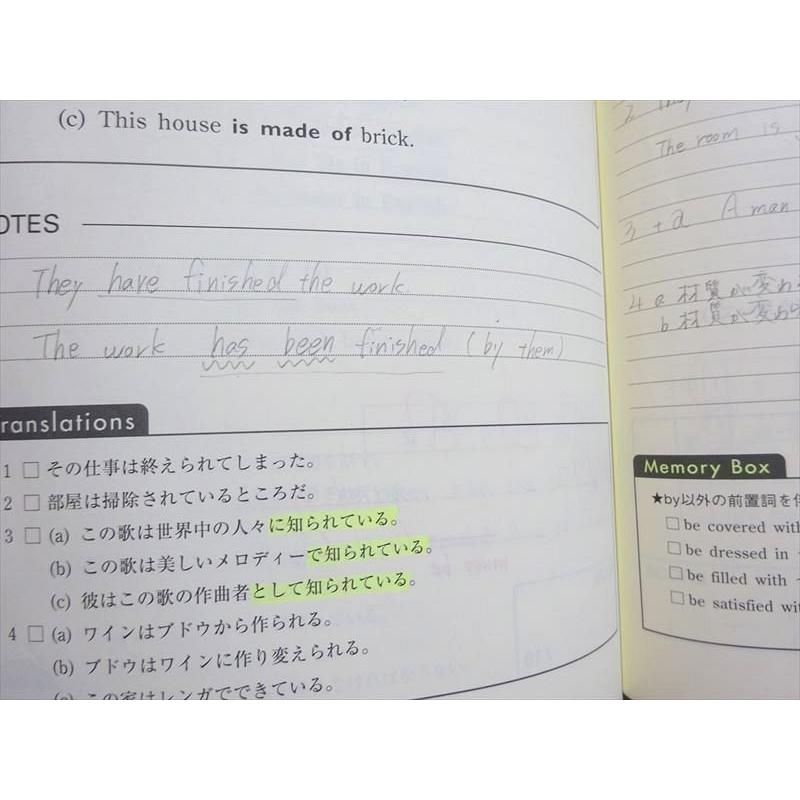 (c) This house is made of brick.
OTES
They have finished the work.
The work has been finished (by them)
ranslations
1 □ その仕事は終えられてしまった。
2 □ 部屋は掃除されているところだ。
3 □ (a) この歌は世界中の人々に知られている。
(b) この歌は美しいメロディーで知られている。
(c) 彼はこの歌の作曲者として知られている。
4 □ (a) ワインはブドウから作られる。
(b) ブドウはワインに作り変えられる。
この家はレンガでできている。
2 They
The room is
3 + α A man
4 a 材質が変わ
b 材質が変わ
Memory Box
★by以外の前置詞を
□ be covered with
□ be dressed in
□ be filled with
□ be satisfied wi